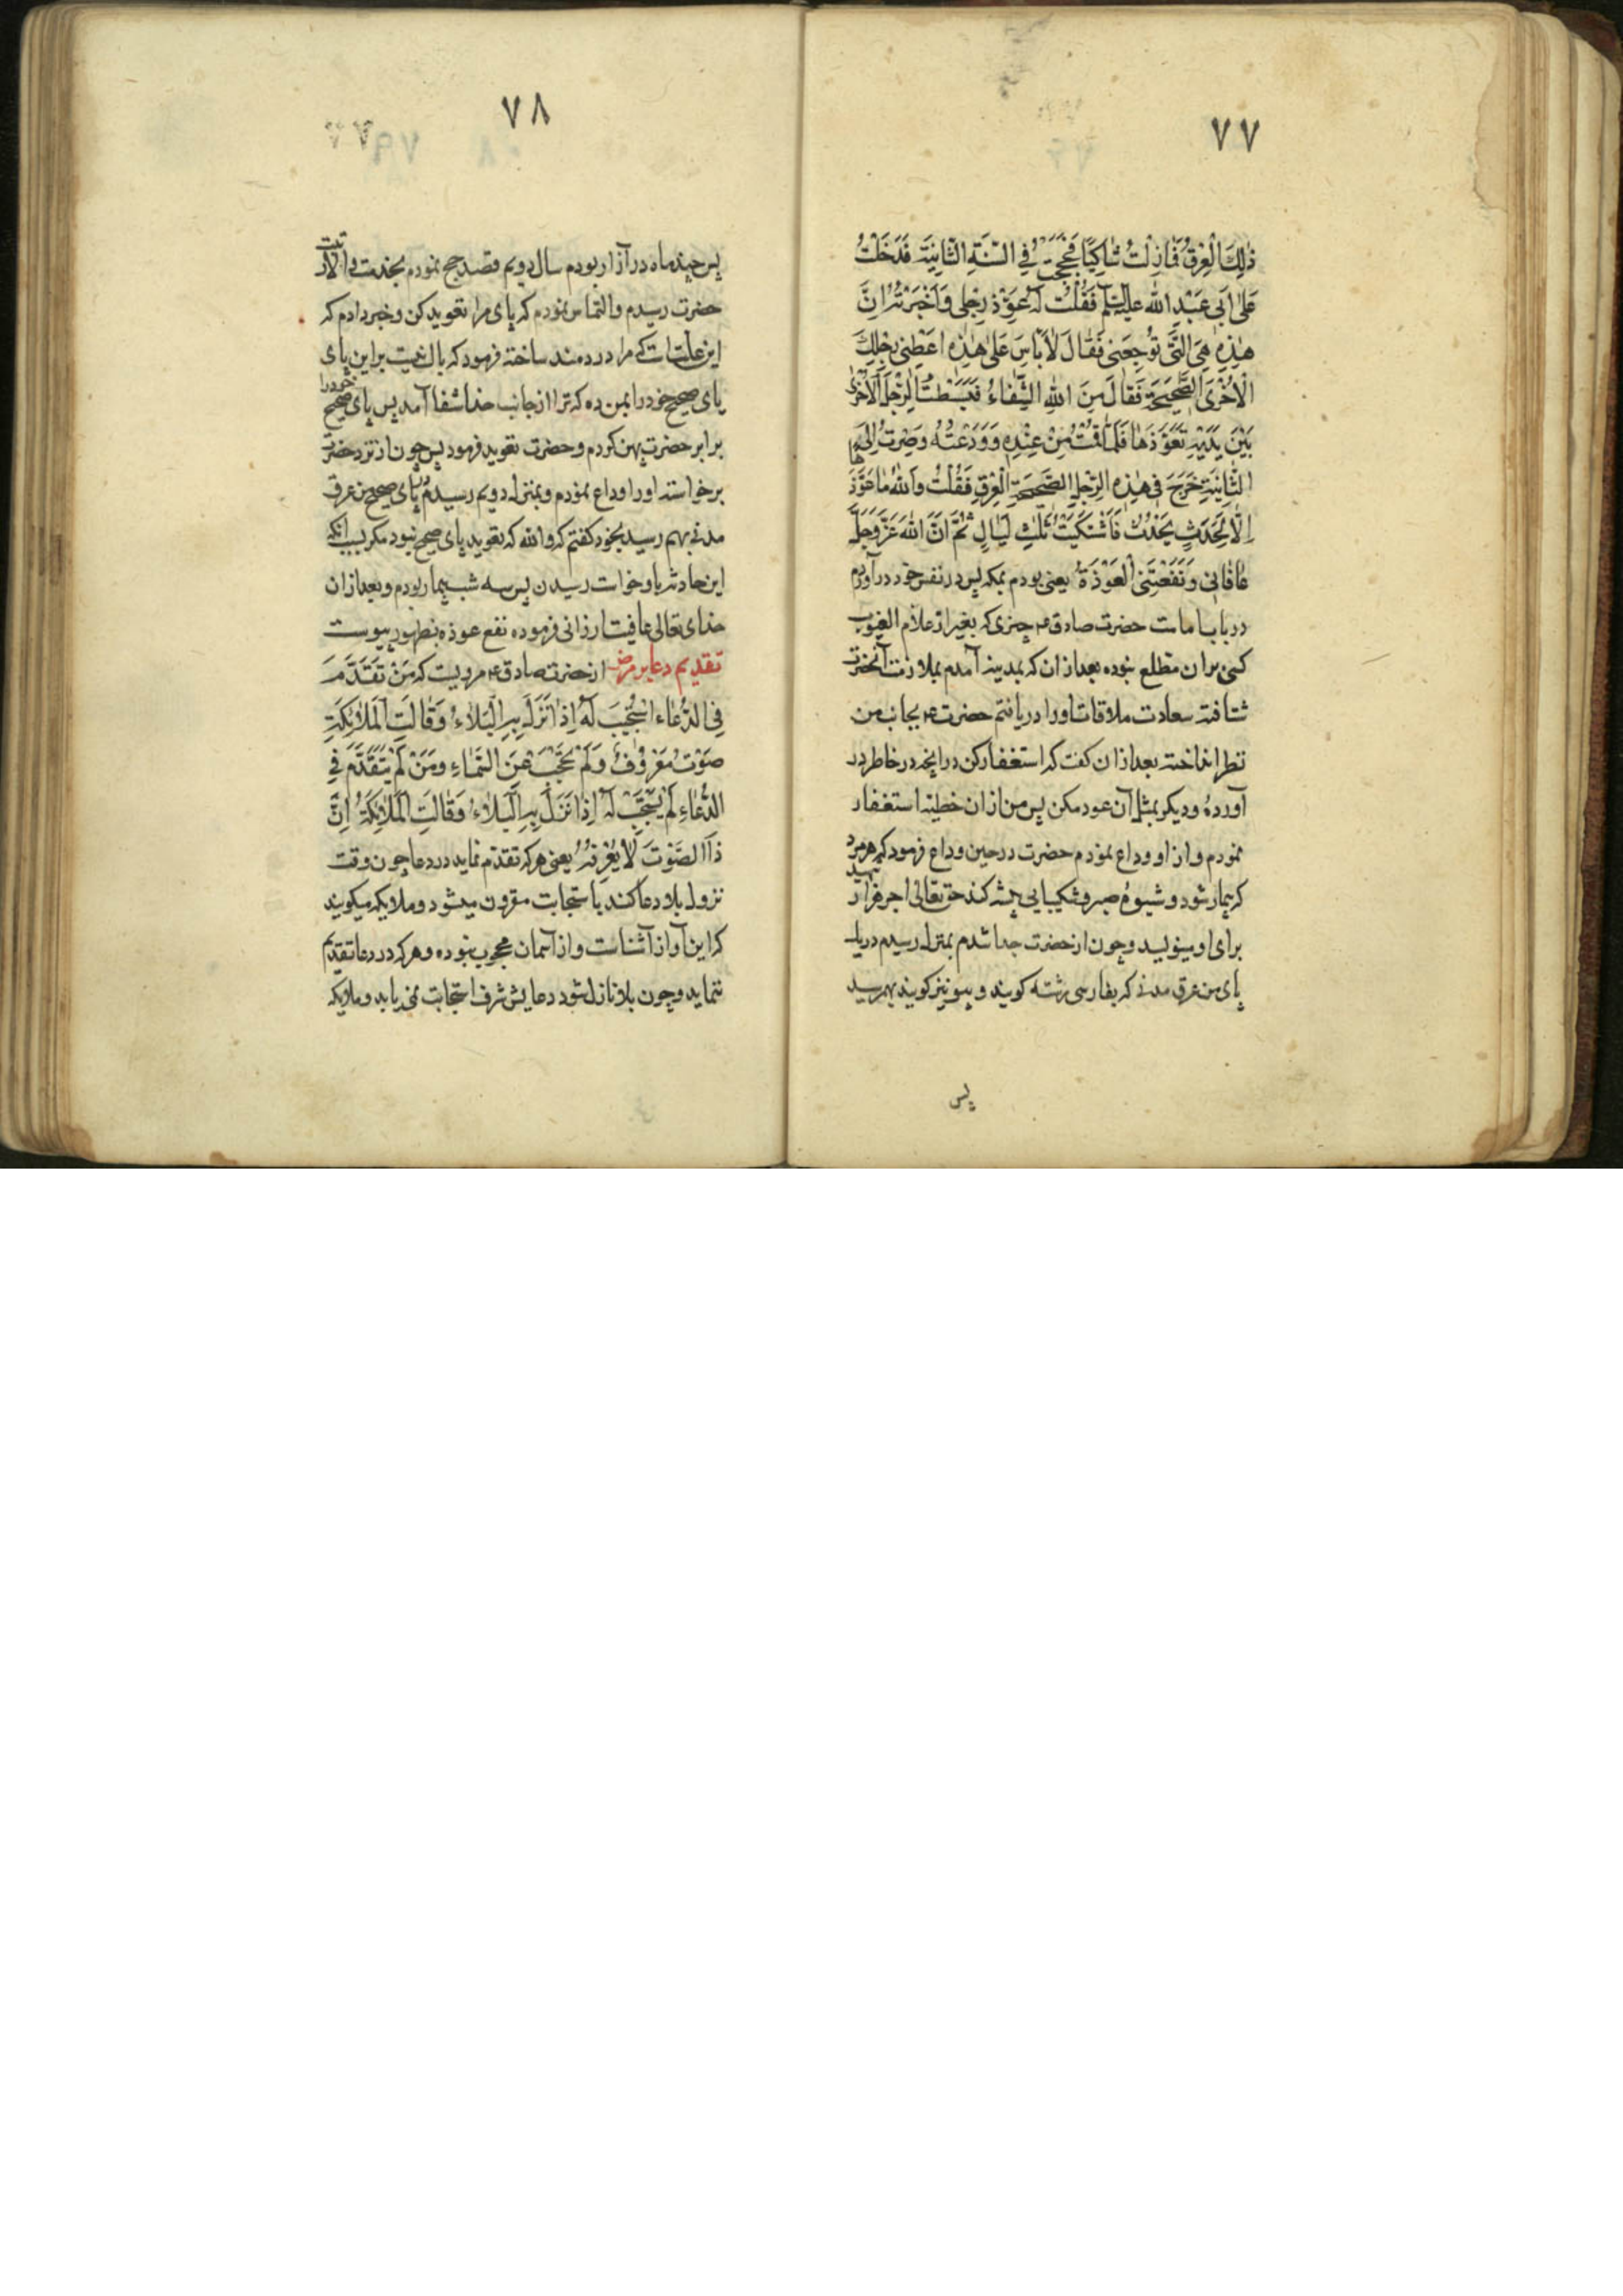 ٧٧
ذٰلِكَ الْعِرْقُ فَمَا زِلْتُ شٰاكِيًا فَحَجَجْتُ فِى السَّنَةِ الثّٰانِيَةِ فَدَخَلْتُ
عَلىٰ اَبى عَبْدِ اللّٰهِ عليه السلم فَقُلْتُ لَهُ عَوِّذْ رِجْلى وَاَخْبَرْتُهُ اِنَّ
هٰذِهِ هِىَ الَّتى تُوجِعَنى فَقٰالَ لاٰ بَاسَ عَلىٰ هٰذِهِ اعْطِنى رِجْلِكَ
الْاُخْرَىٰ الصَّحيحَةَ فَقٰالَ مِنَ اللّٰهِ الشِّفٰاءُ فَبَسَطْتُ الرِّجْلَ الْاُخْرىٰ
بَيْنَ يَدَيْهِ تَعَوَّذَهٰا فَلَمّٰا قُمْتُ مِنْ عِنْدِهِ وَوَدَّعْتُهُ وَصِرْتُ اِلَى
الثّٰانِيَةِ خَرَجَ فى هٰذِهِ الرِّجْلِ الصَّحيحَةِ الْعِرْقِ فَقُلْتُ وَاللّٰهُ مٰا عَوَّذَ
اِلّٰا لِحَدَثٍ يَحْدُثُ فَاشْتَكَيْتُ ثَلٰثِ لَيٰالٍ ثُمَّ انَّ اللّٰهَ عَزَّ وَجَلَّ
عٰافٰانى وَنَفَعْتَنى الْعَوْذَةُ يعنى بودم بمكه پس در نفس خود در آوردم
در باب امامت حضرت صادق ع چيزى كه بغير از علام الغيوب
كسى بران مطلع نبوده بعد از ان كه بمدينه آمدم بملازمت آنحضرت
شتافته سعادت ملاقات او را دريافتم حضرت ع بجانب من
نظر انداخته بعد از ان گفت كه استغفار كن در انچه در خاطر در
آورده و ديگر بمثل آن عود مكن پس من از ان خطيئه استغفار
نمودم و از او وداع نمودم حضرت در حين وداع فرمود كه هر مرد
كه بيمار شود و شيوه صبر و شكيبايى پيشه كند حق تعالى اجر هزار شهيد
براى او مينويسد و چون از حضرت جدا شدم بمنزل رسيدم در يك
پاى من عرق مدنى كه بفارسى رشته كويند و پيو نيز كويند بهم رسيد
پس
٧٨
پس چند ماه در آزار بودم سال دويم قصد حج نمودم بخدمت ولايت
حضرت رسيدم و التماس نمودم كه پاى مرا تعويذ كن و خبر دادم كه
اين علت است كه مرا دردمند ساخته فرمود كه باك نيست بر اين پاى
پاى صحيح خود را بمن ده كه ترا از جانب خدا شفا آمد پس پاى صحيح خود را
برابر حضرت پهن كردم و حضرت تعويذ فرمود پس چون از نزد حضرت
برخواسته او را وداع نمودم و بمنزل دويم رسيدم پاى صحيح من عرق
مدنى بهم رسيد بخود كفتم كه والله كه تعويذ پاى صحيح نبود مكر بسبب انكه
اين حادثه باو خواست رسيدن پس سه شب بيمار بودم و بعد از ان
خداى تعالى عافيت ارزانى فرموده نفع عوذه بظهور پيوست
تقديم دعا بر مرض از حضرت صادق ع مرويست كه مَنْ تَقَدَّمَ
فِى الدُّعٰاءِ اسْتُجْيبَ لَهُ اِذٰا نَزَلَ بِهِ الْبَلٰاءُ وَقٰالَتِ الْمَلٰائِكَةِ
صَوْتٌ مَعْرُوفٌ وَلَمْ يَحْجَبْ عَنِ السَّمٰاءِ وَمَنْ لَمْ يَتَقَدَّمْ فِى
الدُّعٰاءِ لَمْ يُسْتَجَبْ لَهُ اِذٰا نَزَلَ بِهِ الْبَلٰاءُ وَقٰالَتِ الْمَلٰائِكَةُ اِنَّ
ذَا الصَّوْتَ لاٰ نَعْرِفُهُ يعنى هركه تقدم نمايد در دعا چون وقت
نزول بلا دعا كند باستجابت مقرون ميشود و ملايكه ميكويند
كه اين آواز آشناست و از آسمان محجوب نبوده و هركه در دعا تقديم
ننمايد و چون بلا نازل شود دعايش شرف استجابت نمى يابد و ملايكه